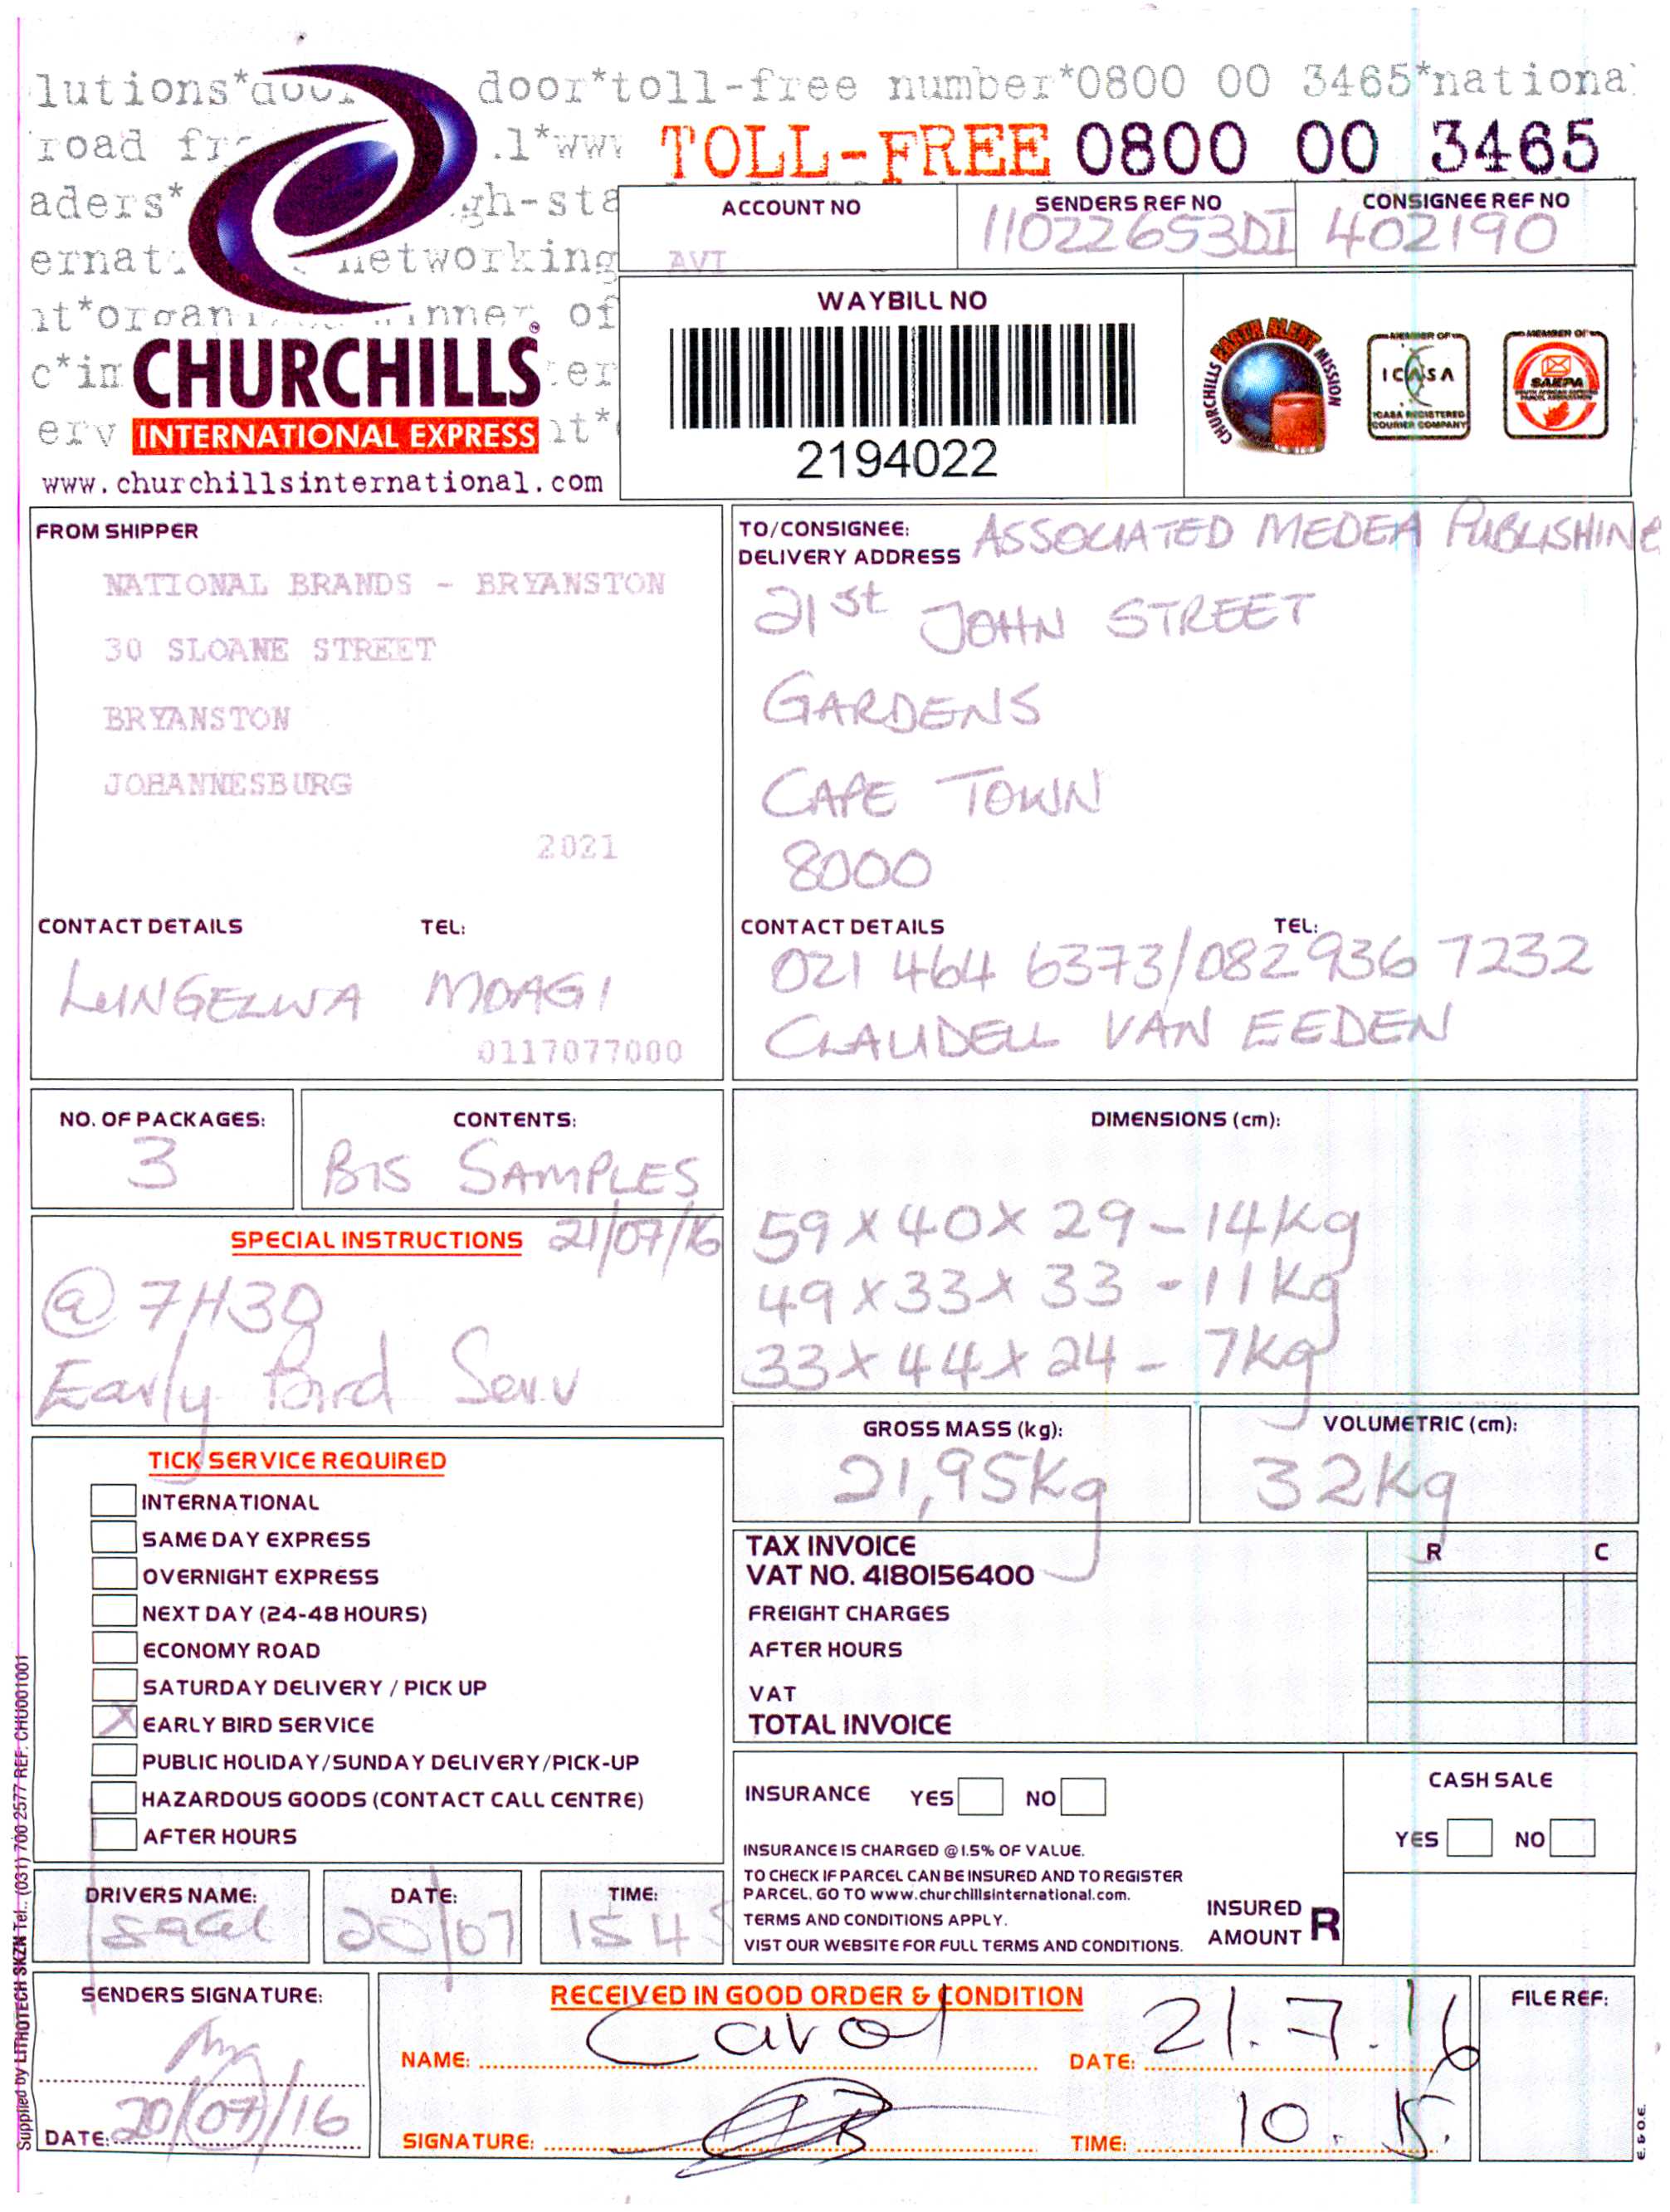 lutions*door door*toll-free number*0800 00 3465*national
road .l*www
TOLL-FREE 0800 00 3465
aders* gh-sta
ernat networking
nt*organi inner of
c*in ter
erv nt*
CHURCHILLS
INTERNATIONAL EXPRESS
www.churchillsinternational.com
ACCOUNT NO
AVI
SENDERS REF NO
110226S3DI
CONSIGNEE REF NO
402190
WAYBILL NO
2194022
CHURCHILLS EARTH ALERT MISSION
MEMBER OF
ICASA
ICASA REGISTERED
COURIER COMPANY
MEMBER OF
SAEPA
SOUTH AFRICAN EXPRESS
PARCEL ASSOCIATION
FROM SHIPPER
NATIONAL BRANDS - BRYANSTON
30 SLOANE STREET
BRYANSTON
JOHANNESBURG
2021
CONTACT DETAILS TEL:
LUNGELWA MOAGI
0117077000
TO/CONSIGNEE:
DELIVERY ADDRESS
ASSOCIATED MEDEA PUBLISHING
21st JOHN STREET
GARDENS
CAPE TOWN
8000
CONTACT DETAILS TEL:
021 464 6373/082 936 7232
CLAUDELL VAN EEDEN
NO. OF PACKAGES:
3
CONTENTS:
BIS SAMPLES
SPECIAL INSTRUCTIONS 21/07/16
@ 7H30
Early Bird Serv
DIMENSIONS (cm):
59 x 40 x 29 - 14kg
49 x 33 x 33 - 11kg
33 x 44 x 24 - 7kg
GROSS MASS (kg):
21,95kg
VOLUMETRIC (cm):
32kg
TICK SERVICE REQUIRED
INTERNATIONAL
SAME DAY EXPRESS
OVERNIGHT EXPRESS
NEXT DAY (24-48 HOURS)
ECONOMY ROAD
SATURDAY DELIVERY / PICK UP
X EARLY BIRD SERVICE
PUBLIC HOLIDAY/SUNDAY DELIVERY/PICK-UP
HAZARDOUS GOODS (CONTACT CALL CENTRE)
AFTER HOURS
TAX INVOICE R C
VAT NO. 4180156400
FREIGHT CHARGES
AFTER HOURS
VAT
TOTAL INVOICE
INSURANCE YES NO
INSURANCE IS CHARGED @ 1.5% OF VALUE.
TO CHECK IF PARCEL CAN BE INSURED AND TO REGISTER
PARCEL, GO TO www.churchillsinternational.com.
TERMS AND CONDITIONS APPLY.
VIST OUR WEBSITE FOR FULL TERMS AND CONDITIONS.
CASH SALE
YES NO
INSURED
AMOUNT R
DRIVERS NAME:
Isaac
DATE:
20/07
TIME:
1545
SENDERS SIGNATURE:
DATE: 20/07/16
RECEIVED IN GOOD ORDER & CONDITION
NAME: Carol
DATE: 21.7.16
SIGNATURE:
TIME: 10.15.
FILE REF:
E. & O.E.
Supplied by LITHOTECH SKZN Tel.: (031) 700 2577 REF: CHU001001